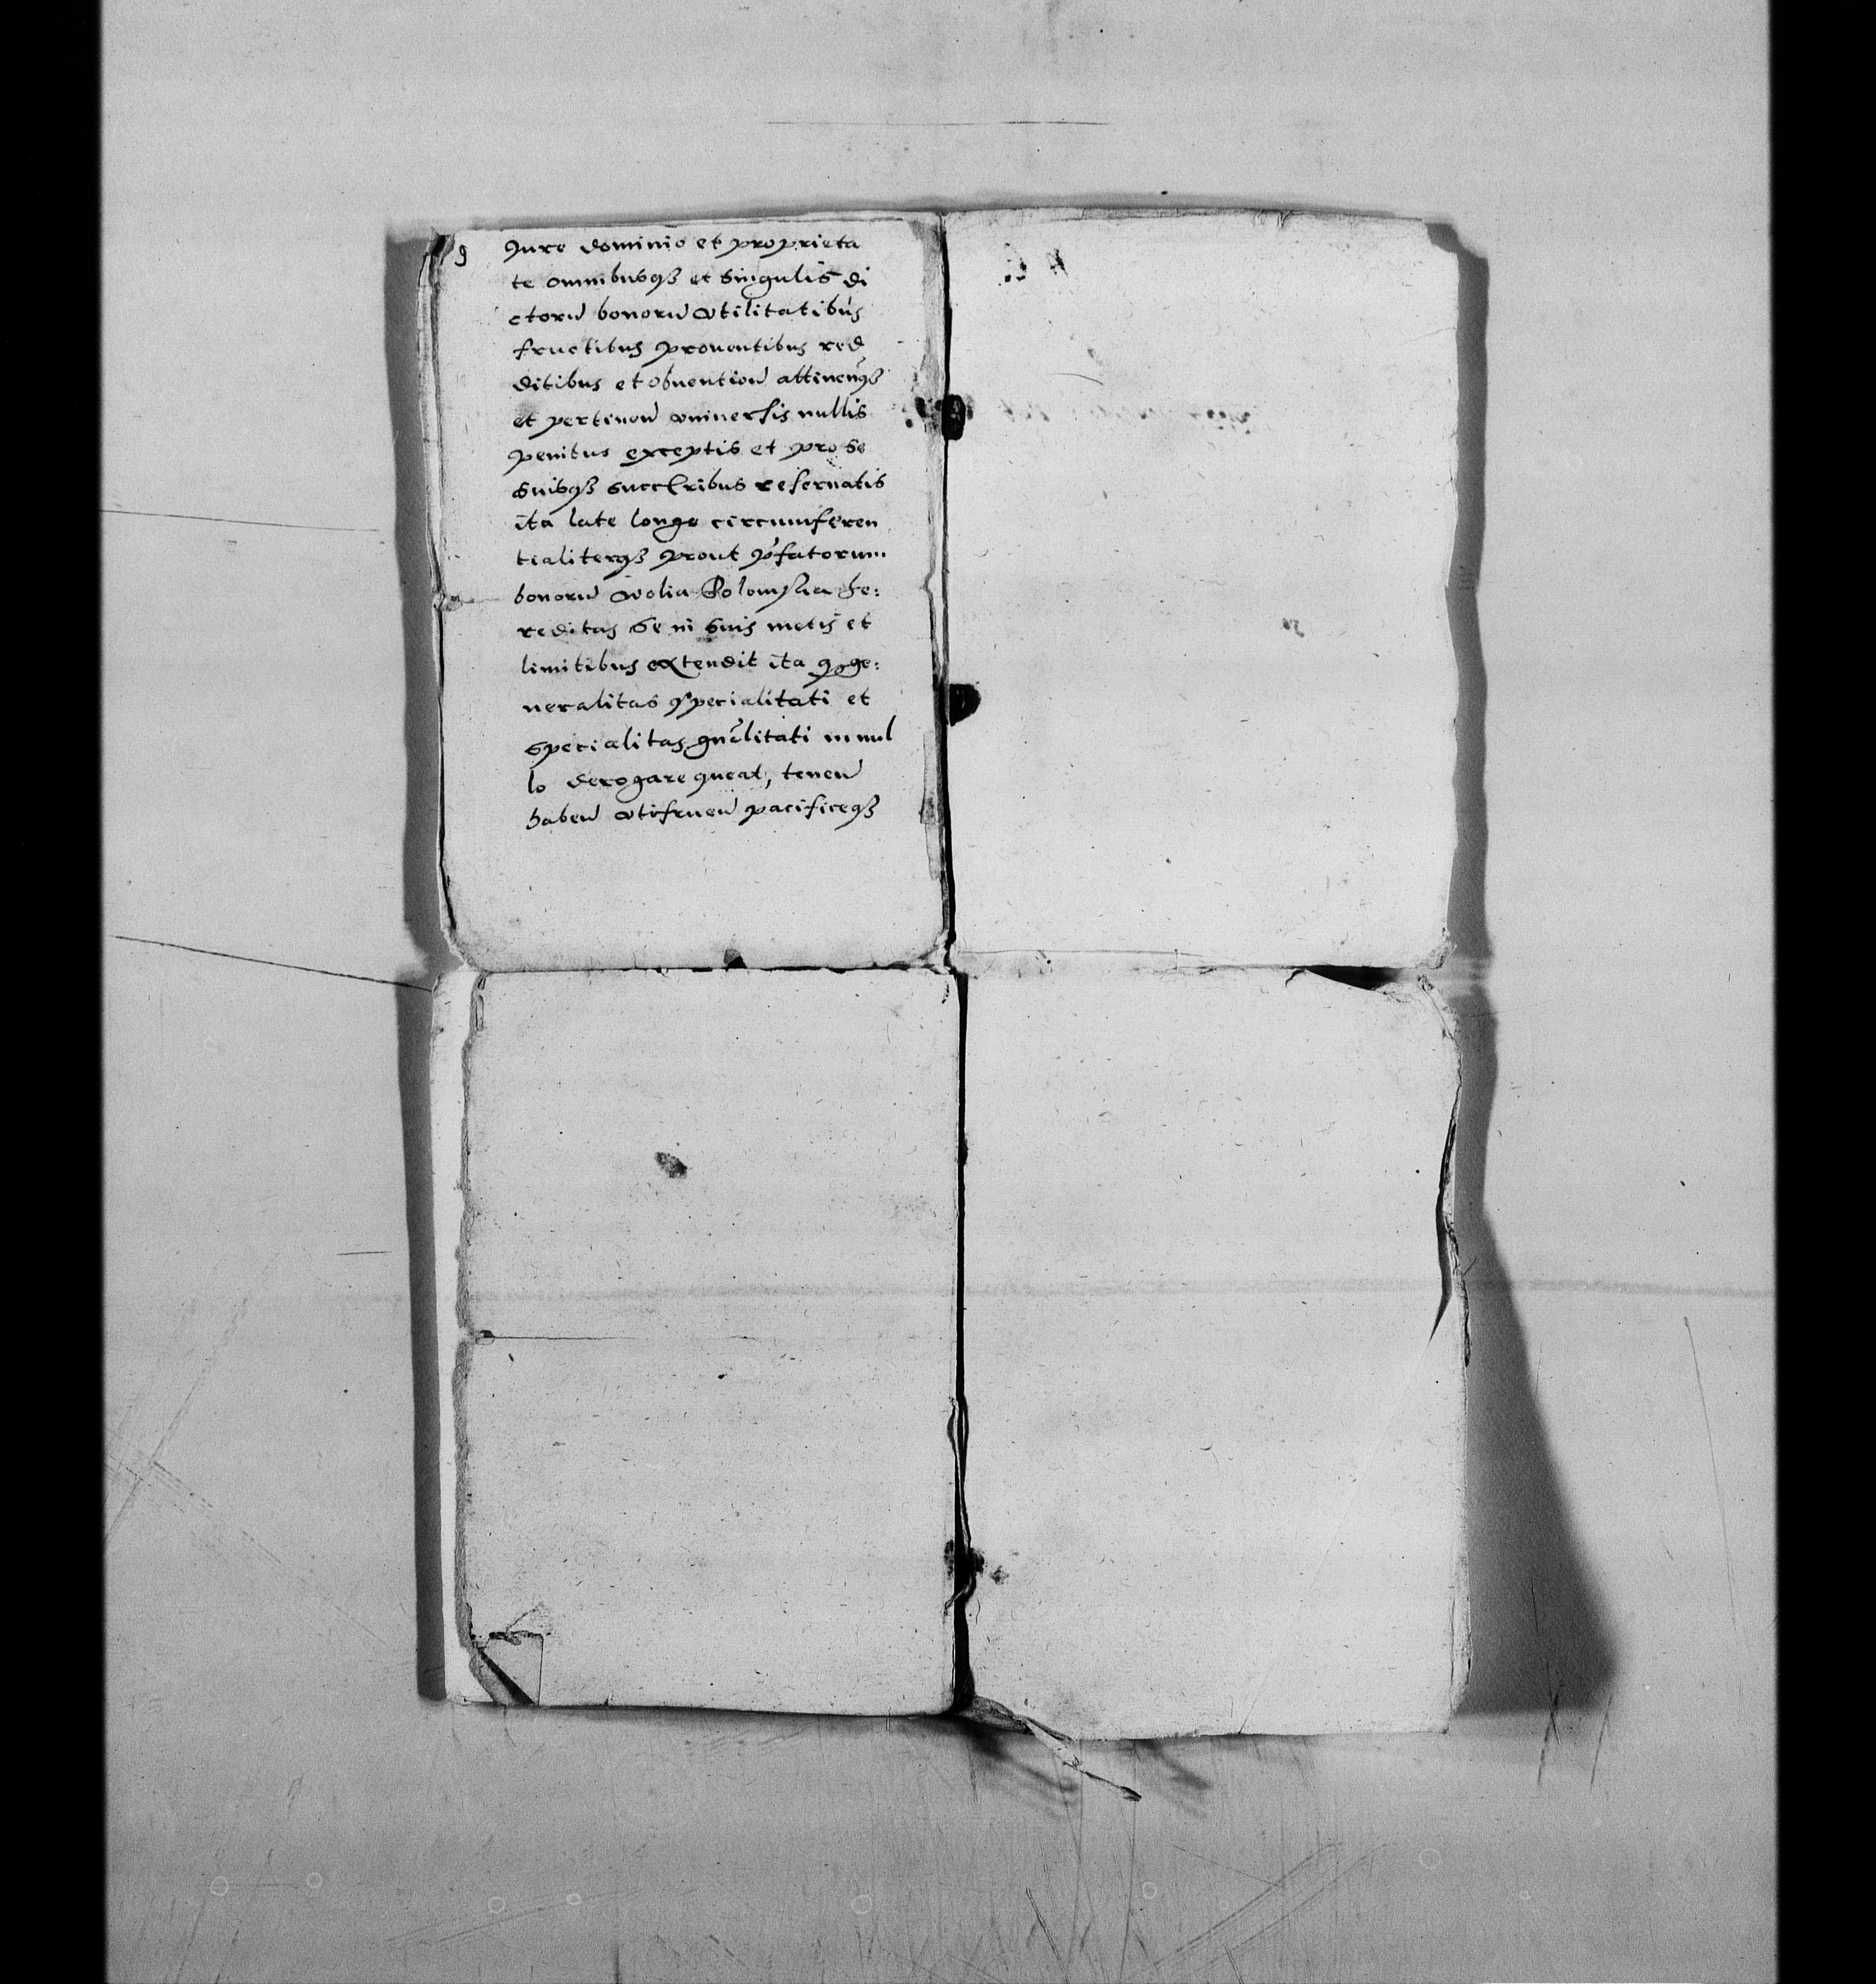 9 Jure dominio et proprieta
te omnibusqȝ et singulis di
ctorũ bonorũ vtilitatibus
fructibus prouentibus red
ditibus et obuention̄ attinen̄qȝ
et pertinen̄ vniuersis nullis
penitus exceptis et pro se
suisqȝ succ̄ribus reseruatis
ita late longe circumferen
tialiterqȝ prout p̄fatorum
bonorũ Wolia he:
reditas se in suis metis et
limitibus extendit ita ꝙ ge:
neralitas specialitati et
specialitas gn̄litati in nul
lo derogare queat, tenen̄
haben̄ vtifruen̄ pacificeqȝ